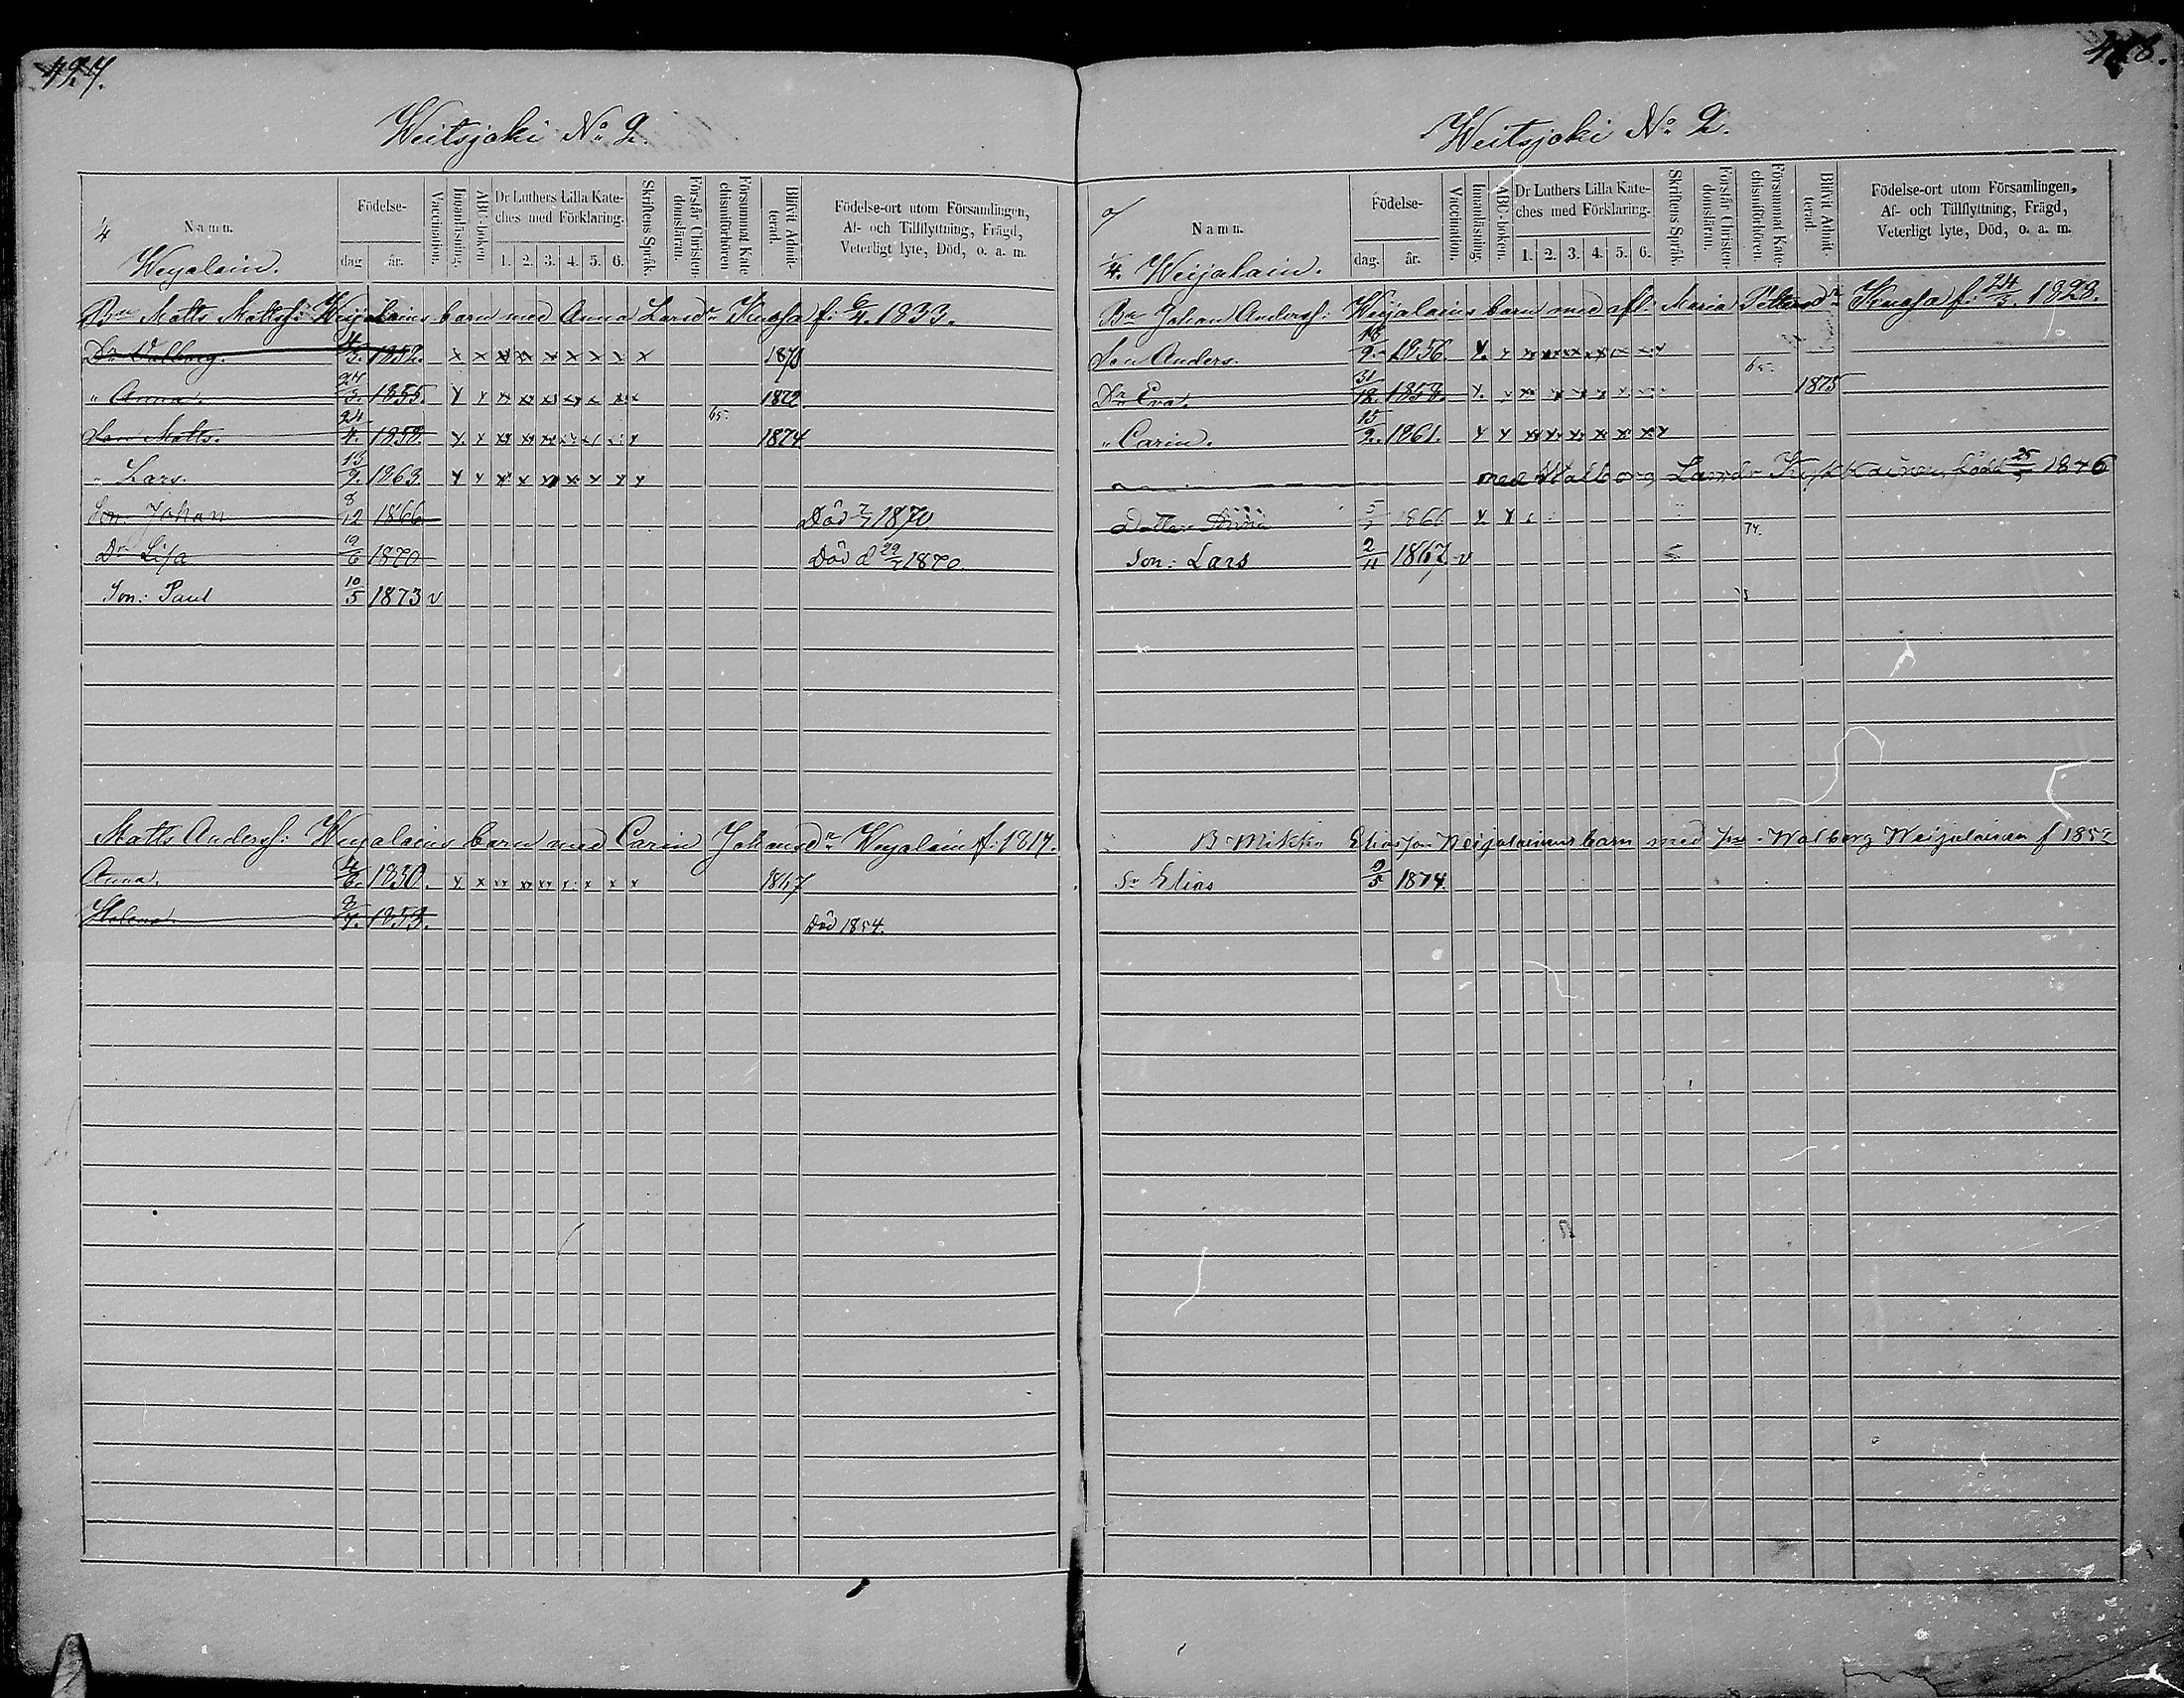 427.
Weitsjoki No 2.
1/4
Namn.
Födelse-
dag
år.
Vaccination.
Innanläsning.
ABC-boken
Dr Luthers Lilla Kate-
ches med Förklaring.
1. 2. 3. 4. 5. 6.
Skriftens Språk.
Förstår Christen-
domsläran.
Försummat Kate
chismiförhören
Blifvit Admit-
terad.
Födelse-ort utom Församlingen,
Af- och Tillflyttning, Frägd,
Veterligt lyte, Död, o. a. m.
Weijalain.
Bn Matts Mattss: Weijalains barn med Anna Larsdr Kuosa f: 6/4. 1833.
Dr Valborg. 4/3. 1852. x x x x x x x x x 1870
" Anna. 24/3. 1855. x x x x x x x x x 1872
65.
Son Matts. 24/4. 1858. x x x x x x x x x 1874
" Lars. 13/9. 1863. x x x x x x x x x
Son: Johan 8/12 1866 Död 7/7 1870
Dr Lisa 19/6 1870 Död d 29/7 1870.
Son: Paul 10/5 1873 v
Matts Anderss: Weijalains barn med Carin Johansdr Weijalain f: 1817.
Anna. 4/6. 1850. x x x x x x x x x 1867
Helena. 2/7. 1853. Död 1854.
428.
Weitsjoki No 2.
Namn.
Födelse-
dag.
år.
Vaccination.
Innanläsning.
ABC-boken.
Dr Luthers Lilla Kate-
ches med Förklaring.
1. 2. 3. 4. 5. 6.
Skriftens Språk.
Förstår Christen-
domsläran.
Försummat Kate-
chismiförhören.
Blifvit Admit-
terad.
Födelse-ort utom Församlingen,
Af- och Tillflyttning, Frägd,
Veterligt lyte, Död, o. a. m.
1/4. Weijalain.
Bn Johan Anderss: Weijalains barn med afl: Maria Pettersdr Kuosa f: 24/3. 1828.
Son Anders. 18/9. 1856. x x x x x x x x x
65.
Dr Eva. 31/12. 1858. x x x x x x x 1875
" Carin. 15/2. 1861. x x x x x x x x x
med Walborg Larsdr 1846
Dotter
74.
Son: Lars 2/11 1867. v
B Mikko Eliasson Weijalainens barn med hu Walborg Weijalainen f 1852
Sr Elias 9/5 1874.